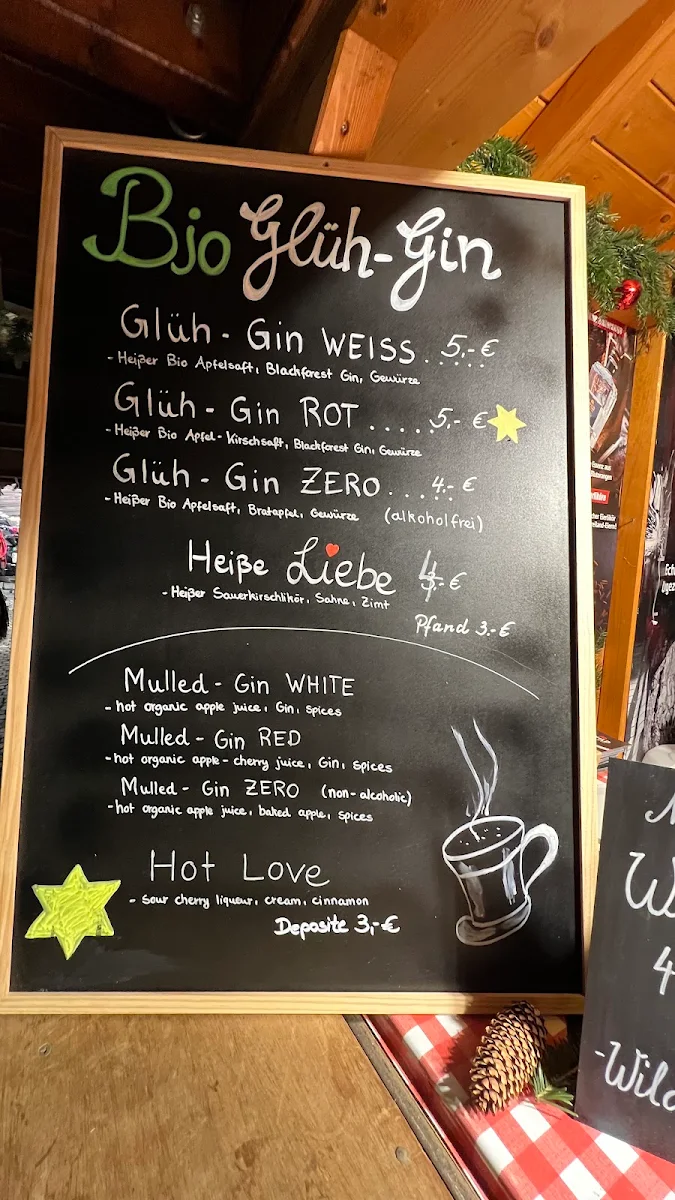 Bio Glüh-Gin
Glüh - Gin WEISS . 5,- €
- Heißer Bio Apfelsaft, Blackforest Gin, Gewürze
Glüh - Gin ROT ..... 5,- €
- Heißer Bio Apfel - Kirschsaft, Blackforest Gin, Gewürze
Glüh - Gin ZERO ... 4,- €
- Heißer Bio Apfelsaft, Bratapfel, Gewürze (alkoholfrei)
Heiße Liebe 4,- €
- Heißer Sauerkirschlikör, Sahne, Zimt
Pfand 3,- €
Mulled - Gin WHITE
- hot organic apple juice, Gin, spices
Mulled - Gin RED
- hot organic apple - cherry juice, Gin, spices
Mulled - Gin ZERO (non-alcoholic)
- hot organic apple juice, baked apple, spices
Hot Love
- sour cherry liqueur, cream, cinnamon
Deposite 3,- €
4
- Wild